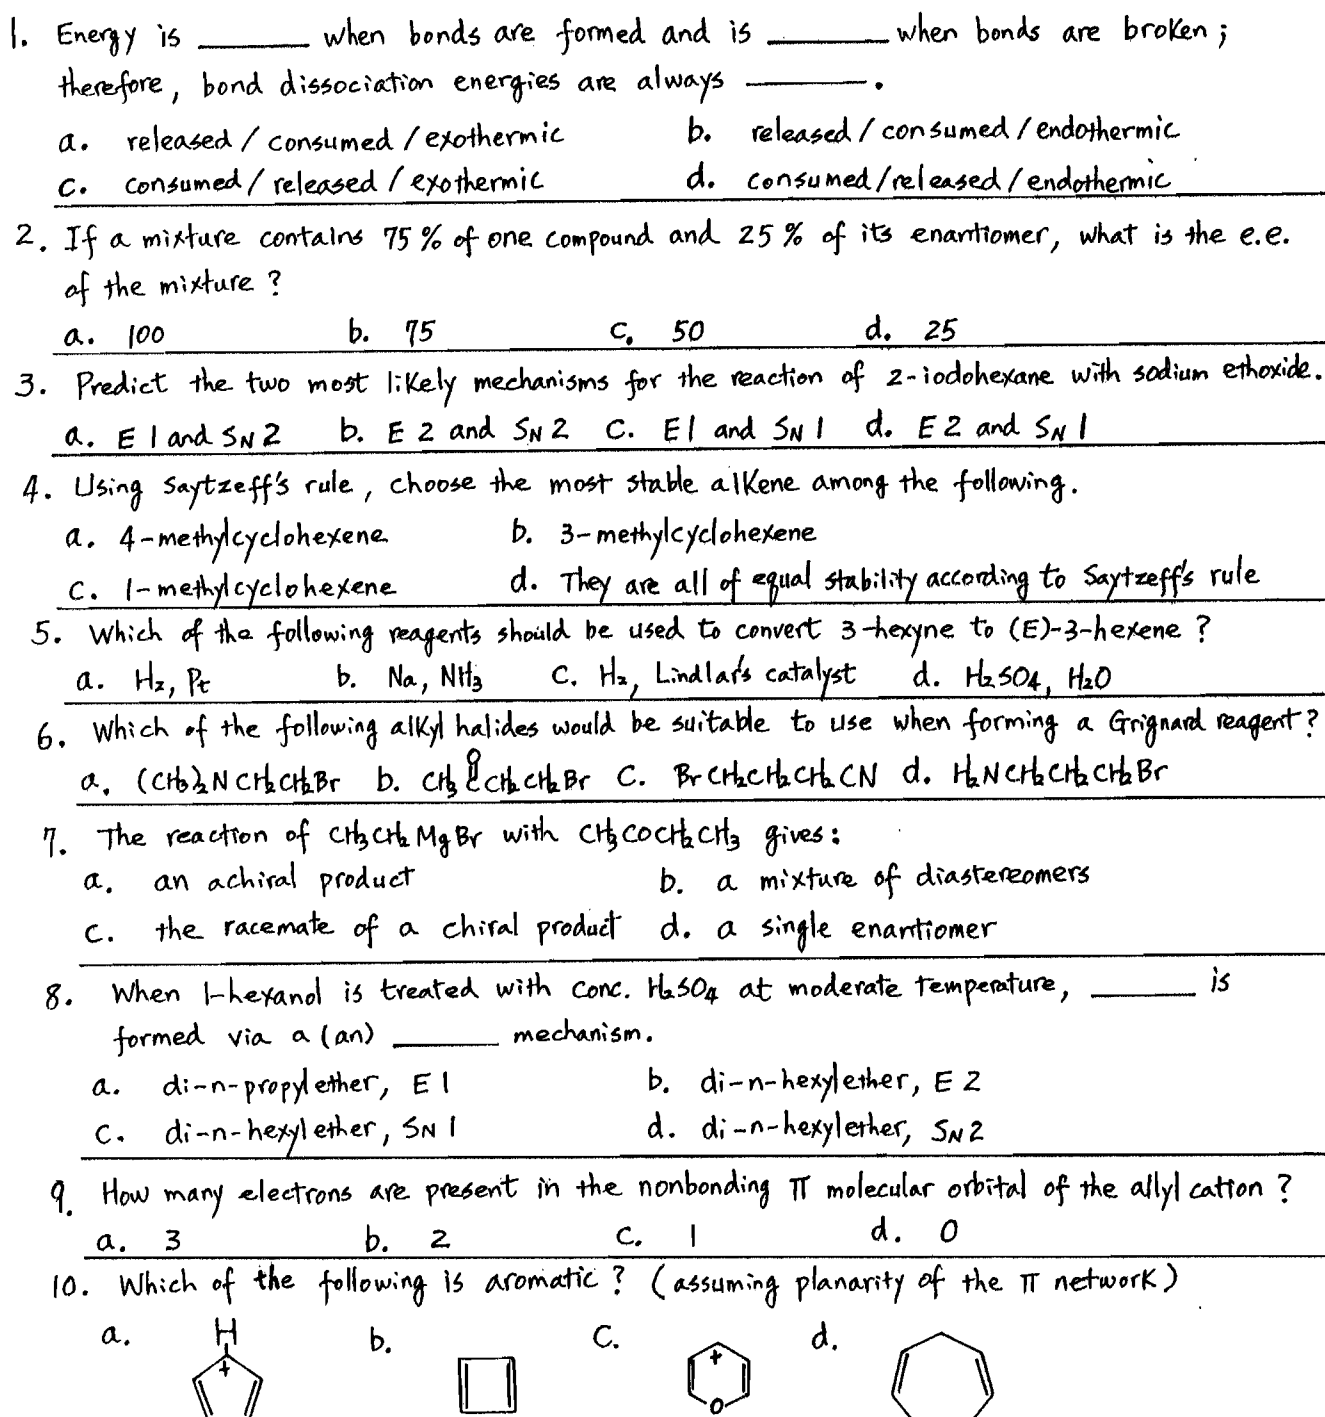 1. Energy is ______ when bonds are formed and is ______ when bonds are broken;
therefore, bond dissociation energies are always ______.
a. released / consumed / exothermic b. released / consumed / endothermic
c. consumed / released / exothermic d. consumed / released / endothermic
2. If a mixture contains 75 % of one compound and 25 % of its enantiomer, what is the e.e.
of the mixture ?
a. 100 b. 75 c. 50 d. 25
3. Predict the two most likely mechanisms for the reaction of 2-iodohexane with sodium ethoxide.
a. E1 and SN2 b. E2 and SN2 c. E1 and SN1 d. E2 and SN1
4. Using Saytzeff's rule, choose the most stable alkene among the following.
a. 4-methylcyclohexene b. 3-methylcyclohexene
c. 1-methylcyclohexene d. They are all of equal stability according to Saytzeff's rule
5. Which of the following reagents should be used to convert 3-hexyne to (E)-3-hexene ?
a. H2, Pt b. Na, NH3 c. H2, Lindlar's catalyst d. H2SO4, H2O
6. Which of the following alkyl halides would be suitable to use when forming a Grignard reagent?
a. (CH3)2NCH2CH2Br b. CH3CCH2CH2Br c. BrCH2CH2CH2CN d. H2NCH2CH2CH2Br
O
7. The reaction of CH3CH2MgBr with CH3COCH2CH3 gives:
a. an achiral product b. a mixture of diastereomers
c. the racemate of a chiral product d. a single enantiomer
8. When 1-hexanol is treated with conc. H2SO4 at moderate temperature, ______ is
formed via a (an) ______ mechanism.
a. di-n-propylether, E1 b. di-n-hexylether, E2
c. di-n-hexylether, SN1 d. di-n-hexylether, SN2
9. How many electrons are present in the nonbonding π molecular orbital of the allyl cation ?
a. 3 b. 2 c. 1 d. 0
10. Which of the following is aromatic ? (assuming planarity of the π network)
a. H + b. c. + O d.